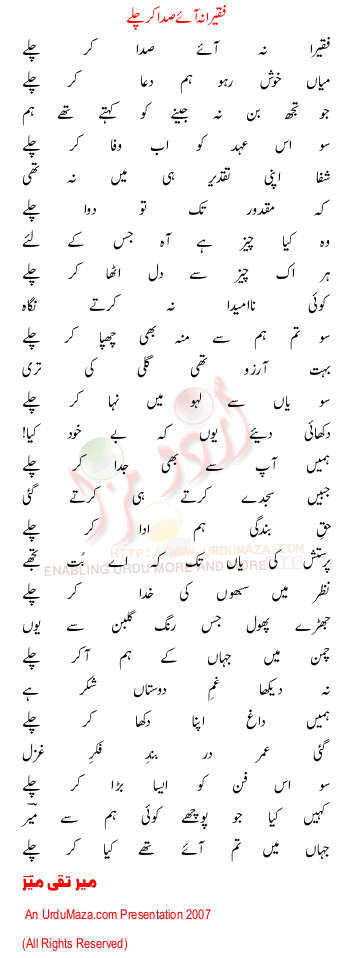 فقیرانہ آئے صدا کر چلے
فقیرا نہ آئے صدا کر چلے
میاں خوش رہو ہم دعا کر چلے
جو تجھ بن نہ جینے کو کہتے تھے ہم
سو اس عہد کو اب وفا کر چلے
شفا اپنی تقدیر ہی میں نہ تھی
کہ مقدور تک تو دوا کر چلے
وہ کیا چیز ہے آہ جس کے لئے
ہر اک چیز سے دل اٹھا کر چلے
کوئی ناامیدا نہ کرتے نگاہ
سو تم ہم سے منہ بھی چھپا کر چلے
بہت آرزو تھی گلی کی تری
سو یاں سے لہو میں نہا کر چلے
دکھائی دیئے یوں کہ بے خود کیا!
ہمیں آپ سے بھی جدا کر چلے
جبیں سجدے کرتے ہی کرتے گئی
حقِ بندگی ہم ادا کر چلے
پرستش کی یاں تک کہ اے بُت تجھے
نظر میں سبھوں کی خدا کر چلے
جھڑے پھول جس رنگ گلبن سے یوں
چمن میں جہاں کے ہم آ کر چلے
نہ دیکھا غمِ دوستاں شکر ہے
ہمیں داغ اپنا دکھا کر چلے
گئی عمر در بندِ فکرِ غزل
سو اس فن کو ایسا بڑا کر چلے
کہیں کیا جو پوچھے کوئی ہم سے میرؔ
جہاں میں تم آئے تھے کیا کر چلے
میر تقی میرؔ
An UrduMaza.com Presentation 2007
(All Rights Reserved)
اردو مزا
HTTP://WWW.URDUMAZA.COM
ENABLING URDU MORE AND MORE